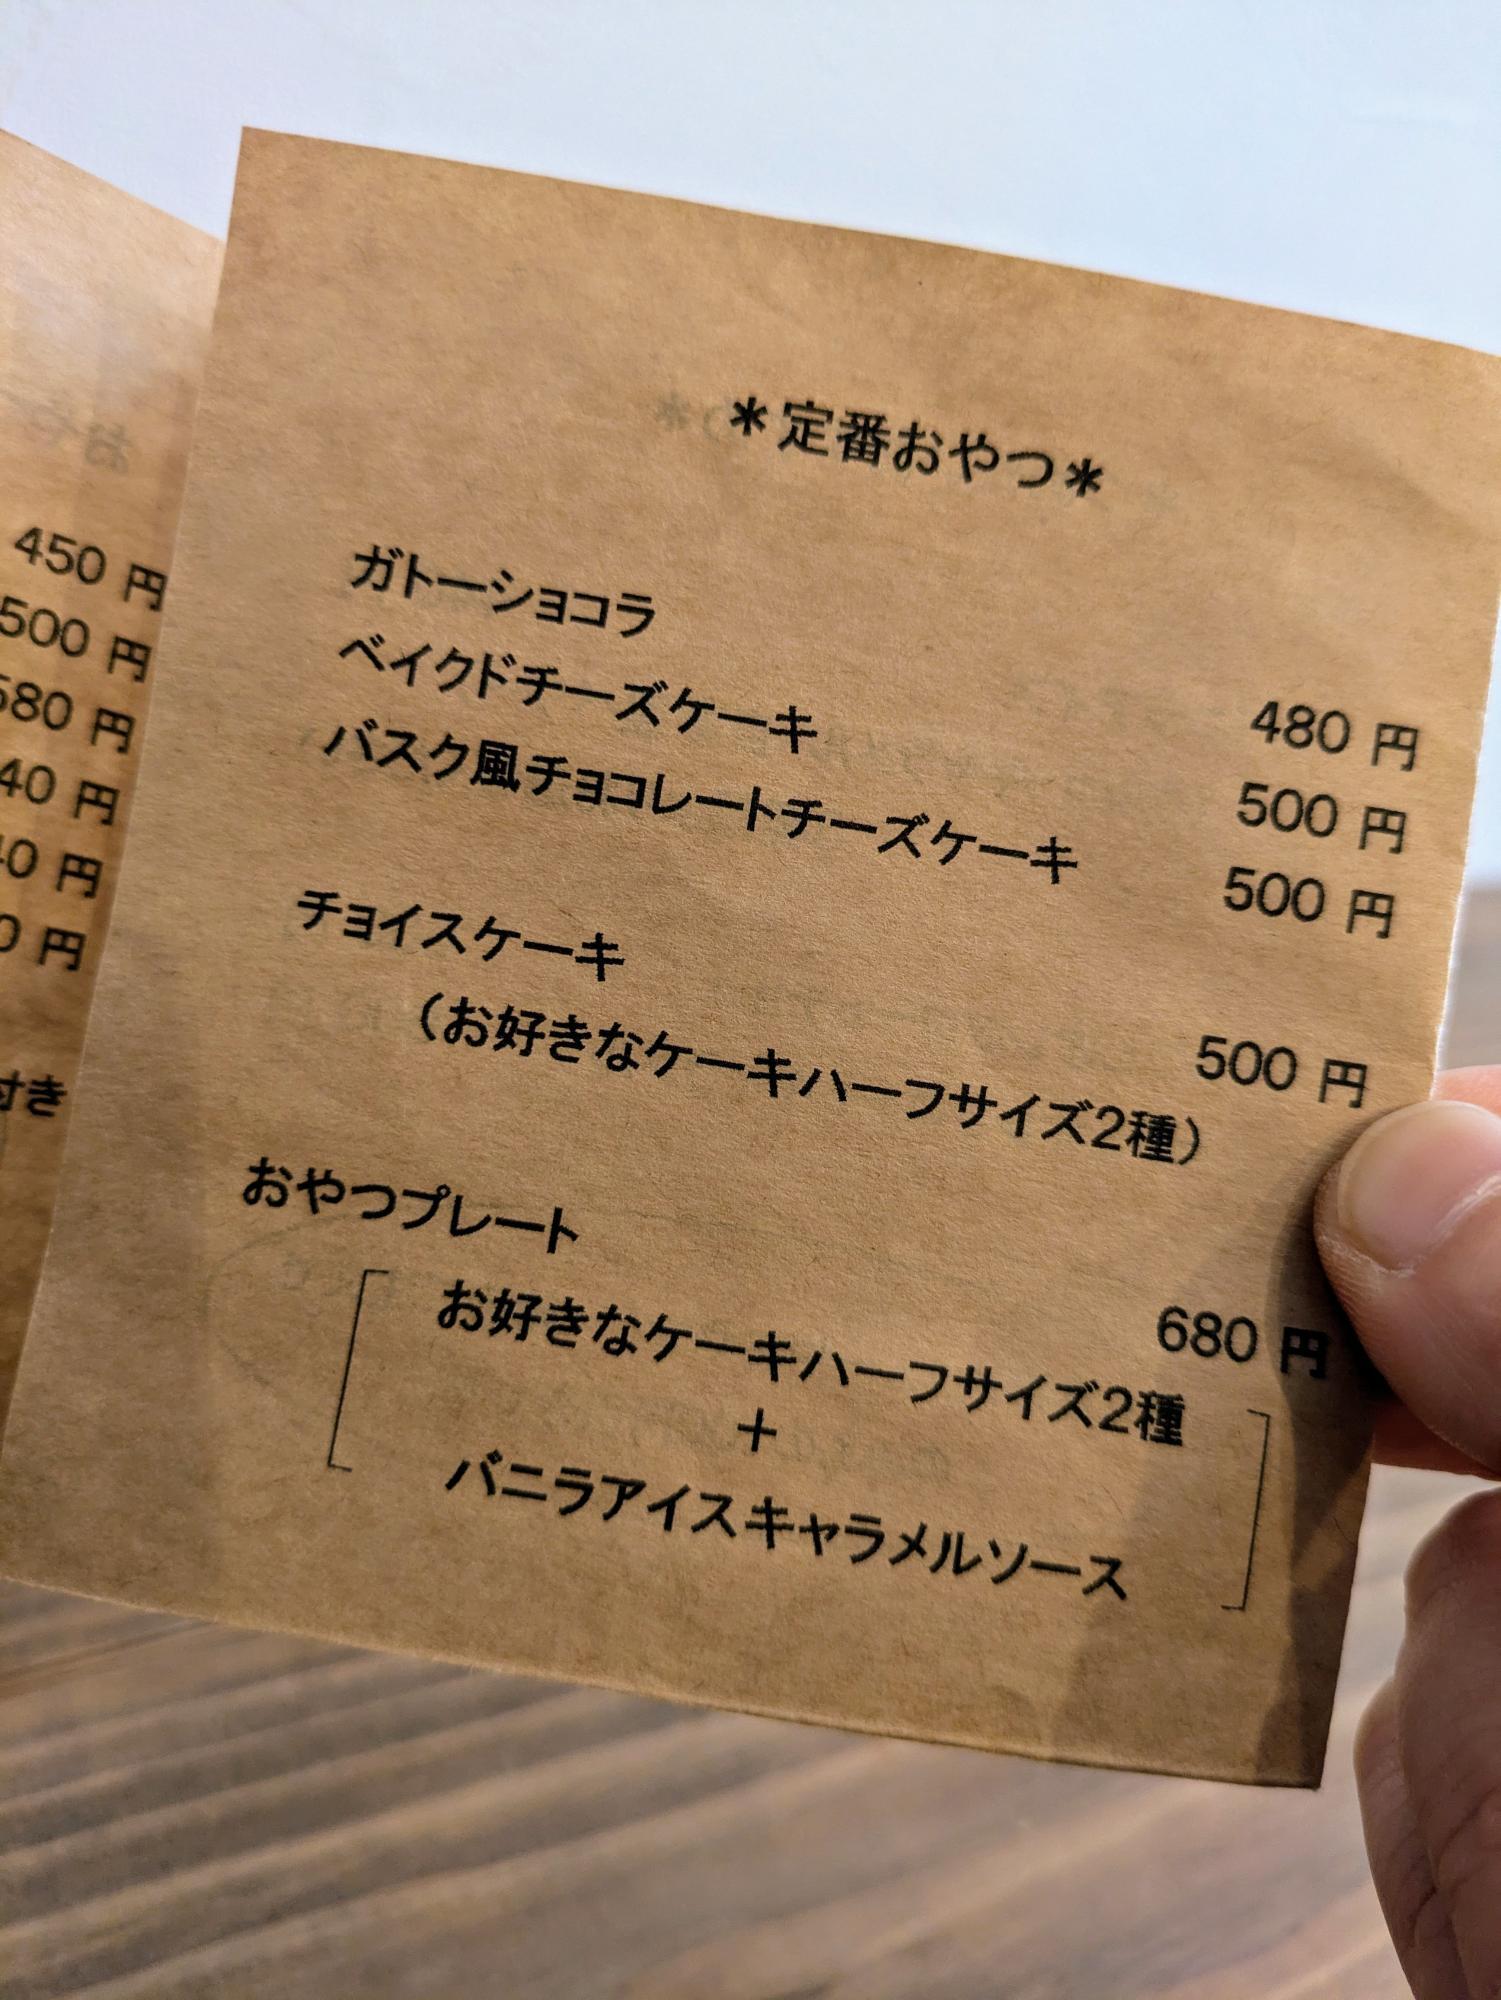 ＊定番おやつ＊
ガトーショコラ 480 円
ベイクドチーズケーキ 500 円
バスク風チョコレートチーズケーキ 500 円
チョイスケーキ 500 円
（お好きなケーキハーフサイズ2種）
おやつプレート 680 円
お好きなケーキハーフサイズ2種
＋
バニラアイスキャラメルソース
450 円
500 円
580 円
40 円
円
円
付き